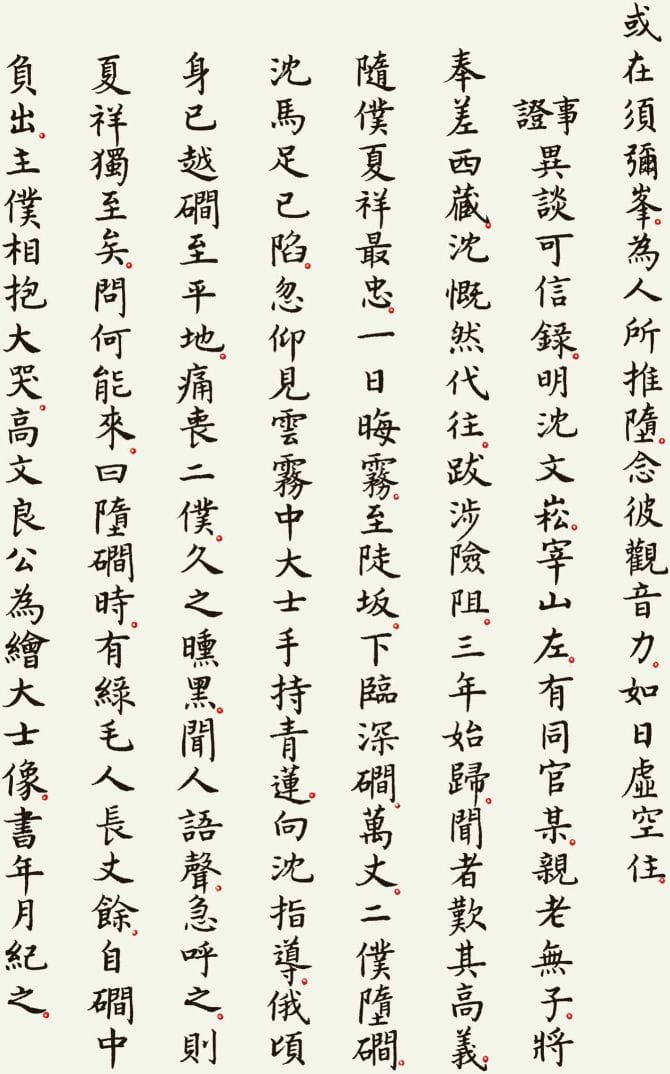 或在須彌峯。為人所推墮。念彼觀音力。如日虛空住。
事證
異談可信錄。明沈文崧。宰山左。有同官某。親老無子。將
奉差西藏。沈慨然代往。跋涉險阻。三年始歸。聞者歎其高義。
隨僕夏祥最忠。一日晦霧。至陡坂。下臨深磵。萬丈。二僕墮磵。
沈馬足已陷。忽仰見雲霧中大士手持青蓮。向沈指導。俄頃
身已越磵至平地。痛喪二僕。久之曛黑。聞人語聲。急呼之。則
夏祥獨至矣。問何能來。曰墮磵時。有綠毛人長丈餘。自磵中
負出。主僕相抱大哭。高文良公為繪大士像。書年月紀之。